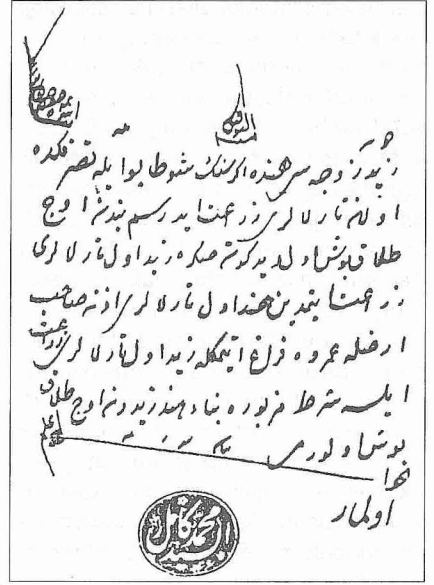 التوفيق
منه
زيد زوجه سى هنده اكر سنك شو طابو ايله تصرفكده
اولان تارلالرى زراعت ايدرسم بندن اوچ
طلاق بوش اول ديدكدن صكره زيد اول تارلالرى
زراعت ايتمدين هند اول تارلالرى اذن صاحب
ارضله عمروه فراغ ايتمكله زيد اول تارلالرى زراعت
ايلسه شرط مزبوره بناء هند زيددن اوچ طلاق
بوش اولورمى
اولماز
السيد محمد كامل